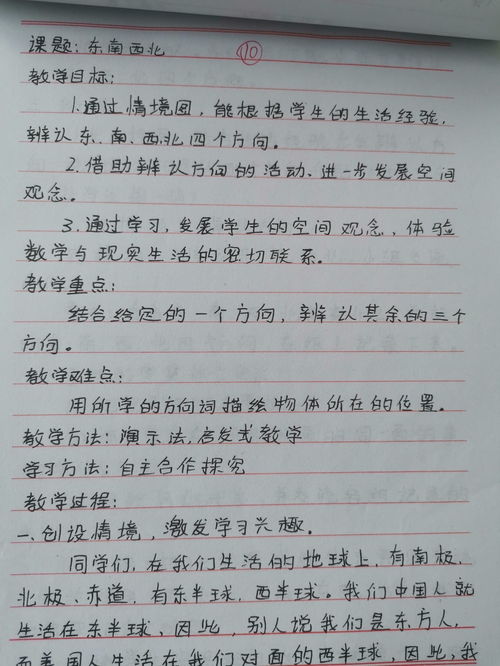 课题：东南西北 ⑩
教学目标：
1.通过情境图，能根据学生的生活经验，
辨认东、南、西、北四个方向。
2.借助辨认方向的活动、进一步发展空间
观念。
3.通过学习，发展学生的空间观念，体验
数学与现实生活的密切联系。
教学重点：
结合给定的一个方向，辨认其余的三个
方向。
教学难点：
用所学的方向词描绘物体所在的位置。
教学方法：演示法，启发式教学
学习方法：自主合作探究
教学过程：
一、创设情境，激发学习兴趣。
同学们，在我们生活的地球上，有南极，
北极、赤道，有东半球，西半球。我们中国人就
生活在东半球、因此，别人说我们是东方人，
而美国人生活在我们对面的西半球，因此，我